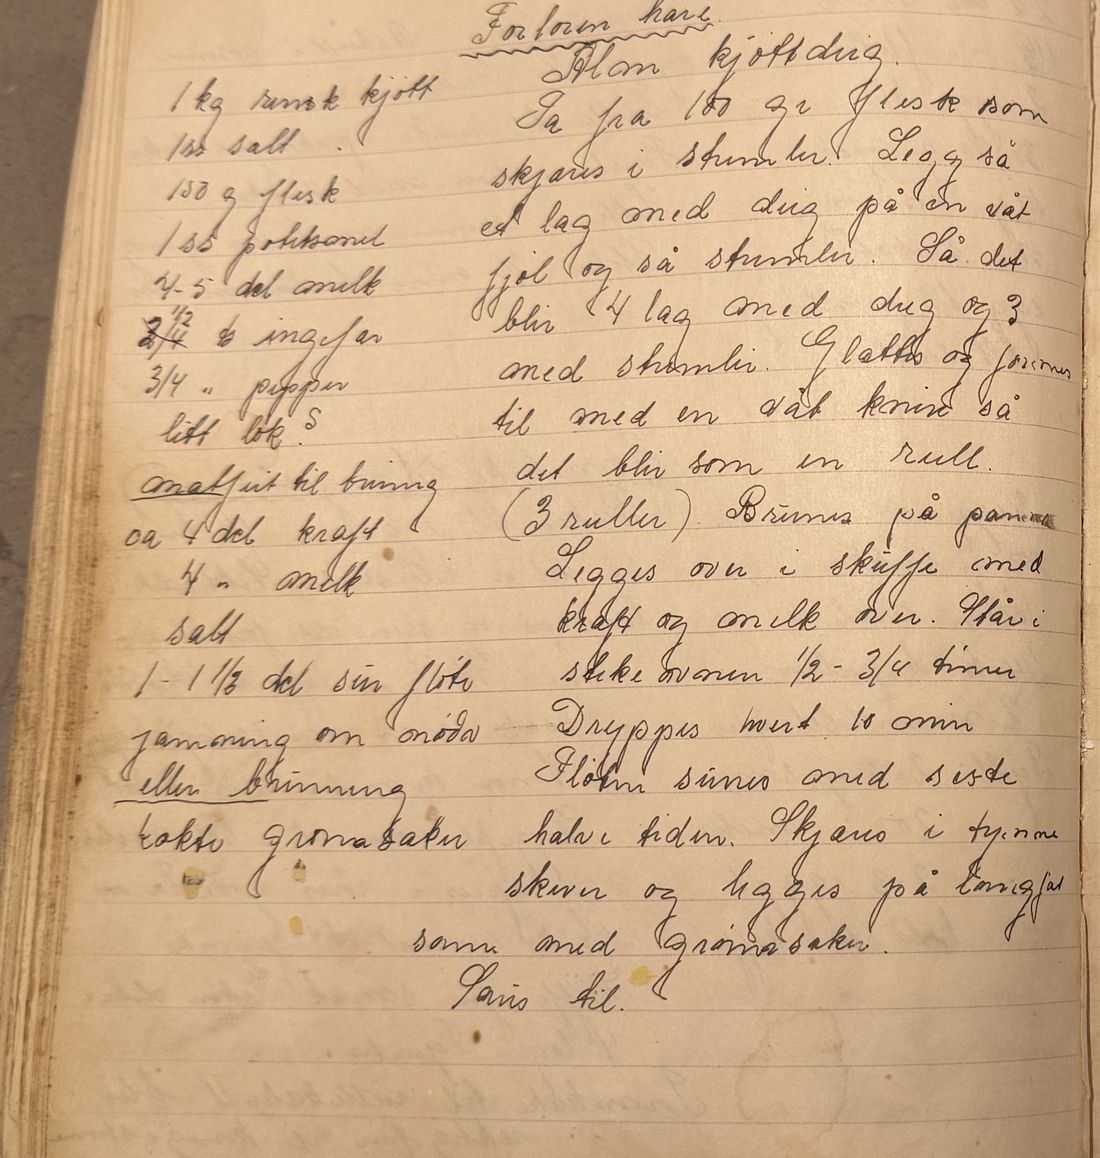 Forloren hare.
1 kg rensk kjött
1 ss salt
150 g flesk
1 ss potetsmel
4-5 del melk
1/2 ts ingefær
3/4 " pepper
litt lök.
matfeit til bruning
ca 4 del kraft
4 " melk
salt
1 - 1 1/2 del sur flöte
jamning om nödv
eller brunning
kokte grönsaker
Alm kjöttdeig.
Ta fra 100 gr flesk som
skjæres i strimler. Legg så
et lag med deig på en våt
fjöl og så strimler. Så det
blir 4 lag med deig og 3
med strimler. Glattes og formes
til med en våt kniv så
det blir som en rull.
(3 ruller). Brunes på panna
Legges over i skuffe med
kraft og melk over. Står i
stekeovnen 1/2 - 3/4 timer
Dryppes hvert 10 min
Flöten sunes med siste
halve tiden. Skjæres i tynne
skiver og legges på langfat
same med grönsaker.
Saus til.